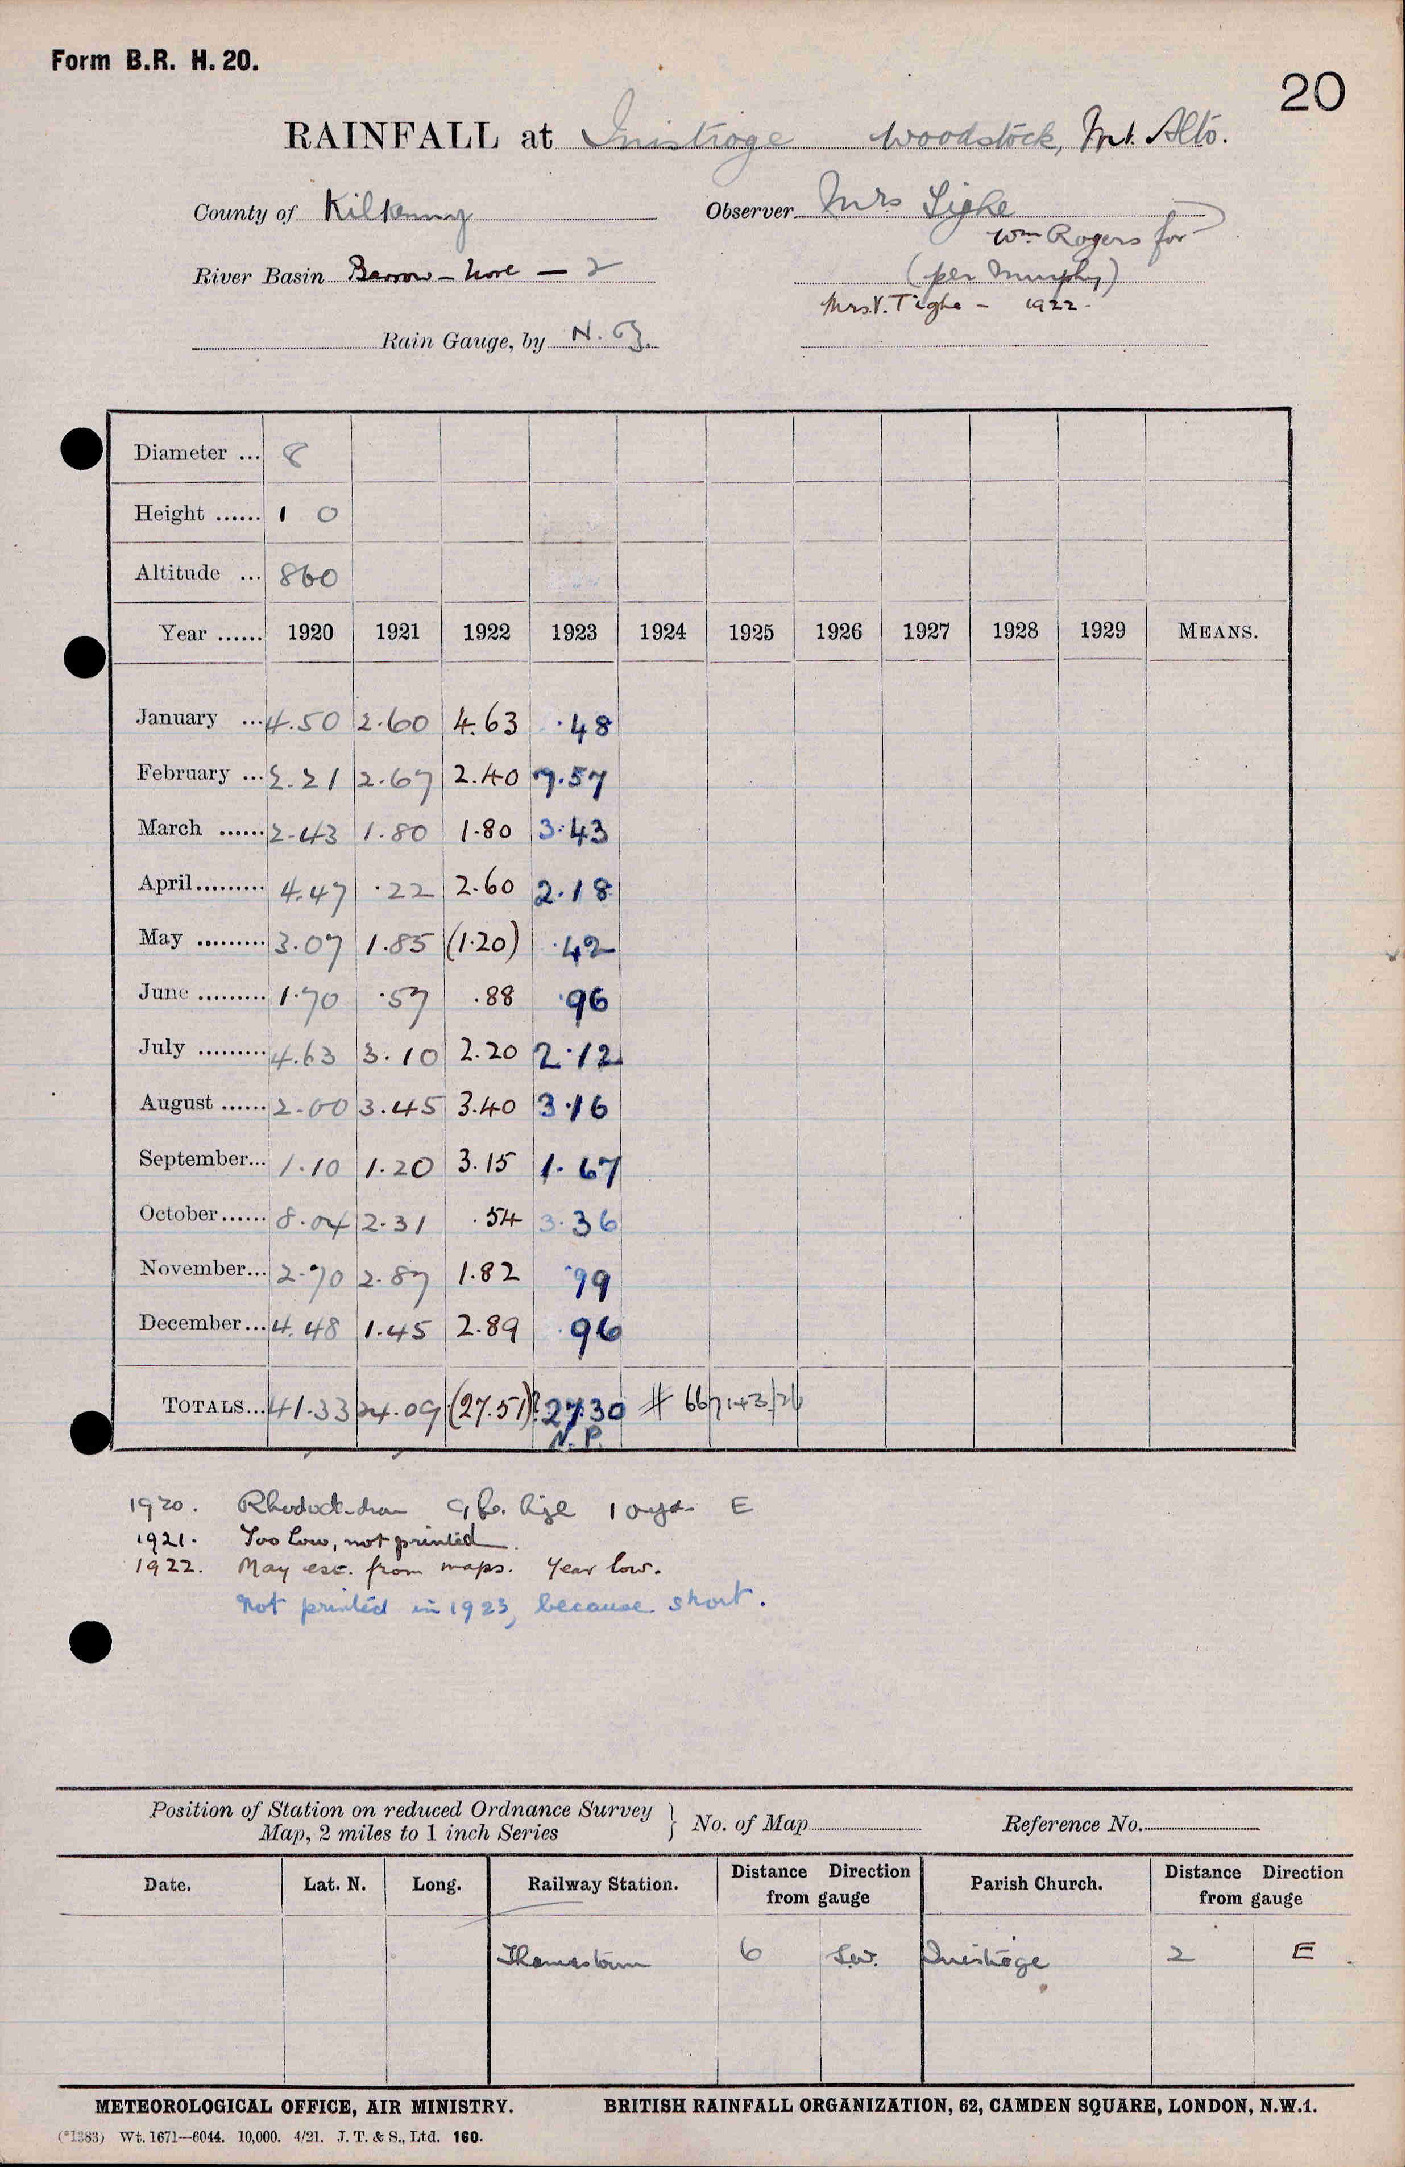 Form B.R. H. 20.
20
RAINFALL at Inistioge Woodstock, Mt. Alto.
County of Kilkenny Observer Mrs Tighe
Wm Rogers for
River Basin Barrow – Nore – 2 (per Murphy)
Mrs. V. Tighe – 1922.
Rain Gauge, by N. Z.
Diameter ... 8
Height ...... 1 0
Altitude ... 860
Year ...... 1920 1921 1922 1923 1924 1925 1926 1927 1928 1929 MEANS.
January ... 4.50 2.60 4.63 .48
February ... 2.21 2.67 2.40 7.57
March ...... 2.43 1.80 1.80 3.43
April ......... 4.47 .22 2.60 2.18
May ......... 3.07 1.85 (1.20) .42
June ......... 1.70 .57 .88 .96
July ......... 4.63 3.10 2.20 2.12
August ...... 2.00 3.45 3.40 3.16
September... 1.10 1.20 3.15 1.67
October...... 8.04 2.31 .54 3.36
November... 2.70 2.87 1.82 .99
December... 4.48 1.45 2.89 .96
TOTALS... 41.33 24.09 (27.51)? 27.30 # 667143/26
N.P.
1920. 9 ft. high 10 yds. E
1921. Too low, not printed.
1922. May est. from maps. Year low.
Not printed in 1923, because short.
Position of Station on reduced Ordnance Survey
Map, 2 miles to 1 inch Series } No. of Map Reference No.
Date. Lat. N. Long. Railway Station. Distance Direction from gauge Parish Church. Distance Direction from gauge
Thomastown 6 S.W. Inistioge 2 E
METEOROLOGICAL OFFICE, AIR MINISTRY. BRITISH RAINFALL ORGANIZATION, 62, CAMDEN SQUARE, LONDON, N.W.1.
(*1383) Wt. 1671—6044. 10,000. 4/21. J. T. & S., Ltd. 160.